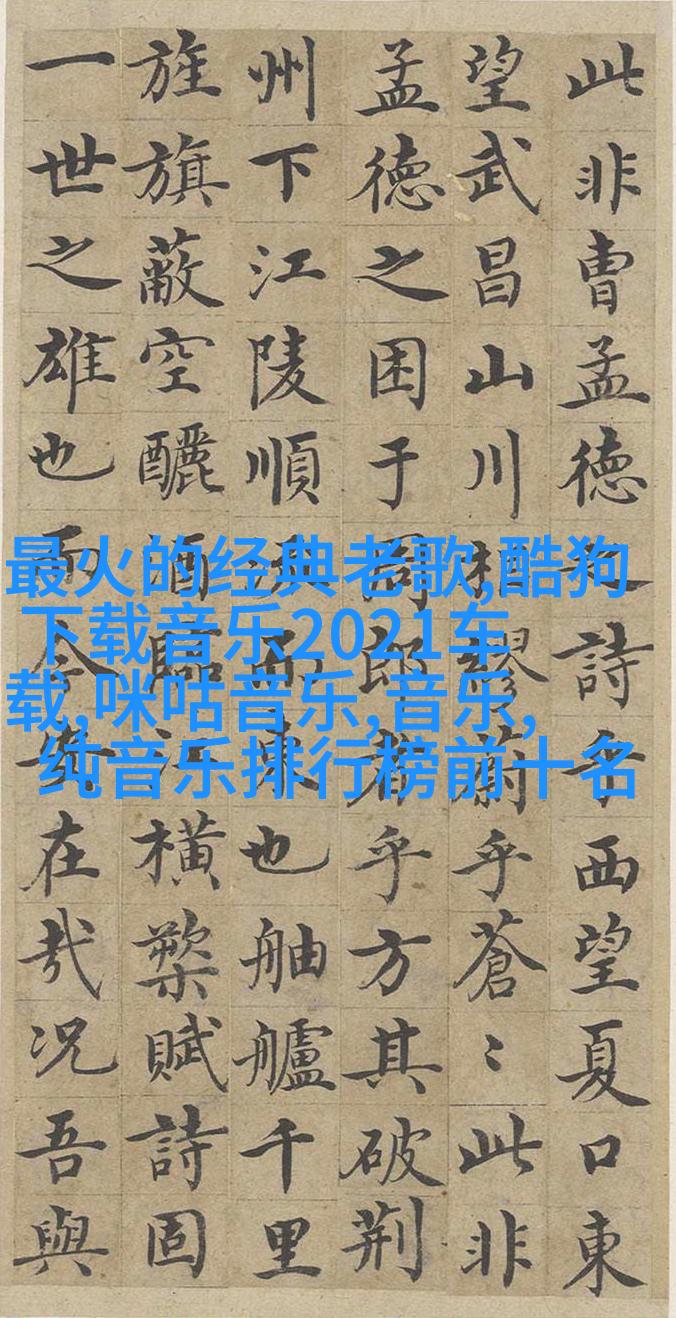 此非曹孟德之詩乎西望夏口東
望武昌山川相繆蔚乎蒼〻此非
孟德之困于周郎者乎方其破荆
州下江陵順流而東也舳艫千里
旌旗蔽空釃酒臨江橫槊賦詩固
一世之雄也而今安在哉况吾與
最火的经典老歌,酷狗
下载音乐2021车
载,咪咕音乐,音乐,
纯音乐排行榜前十名